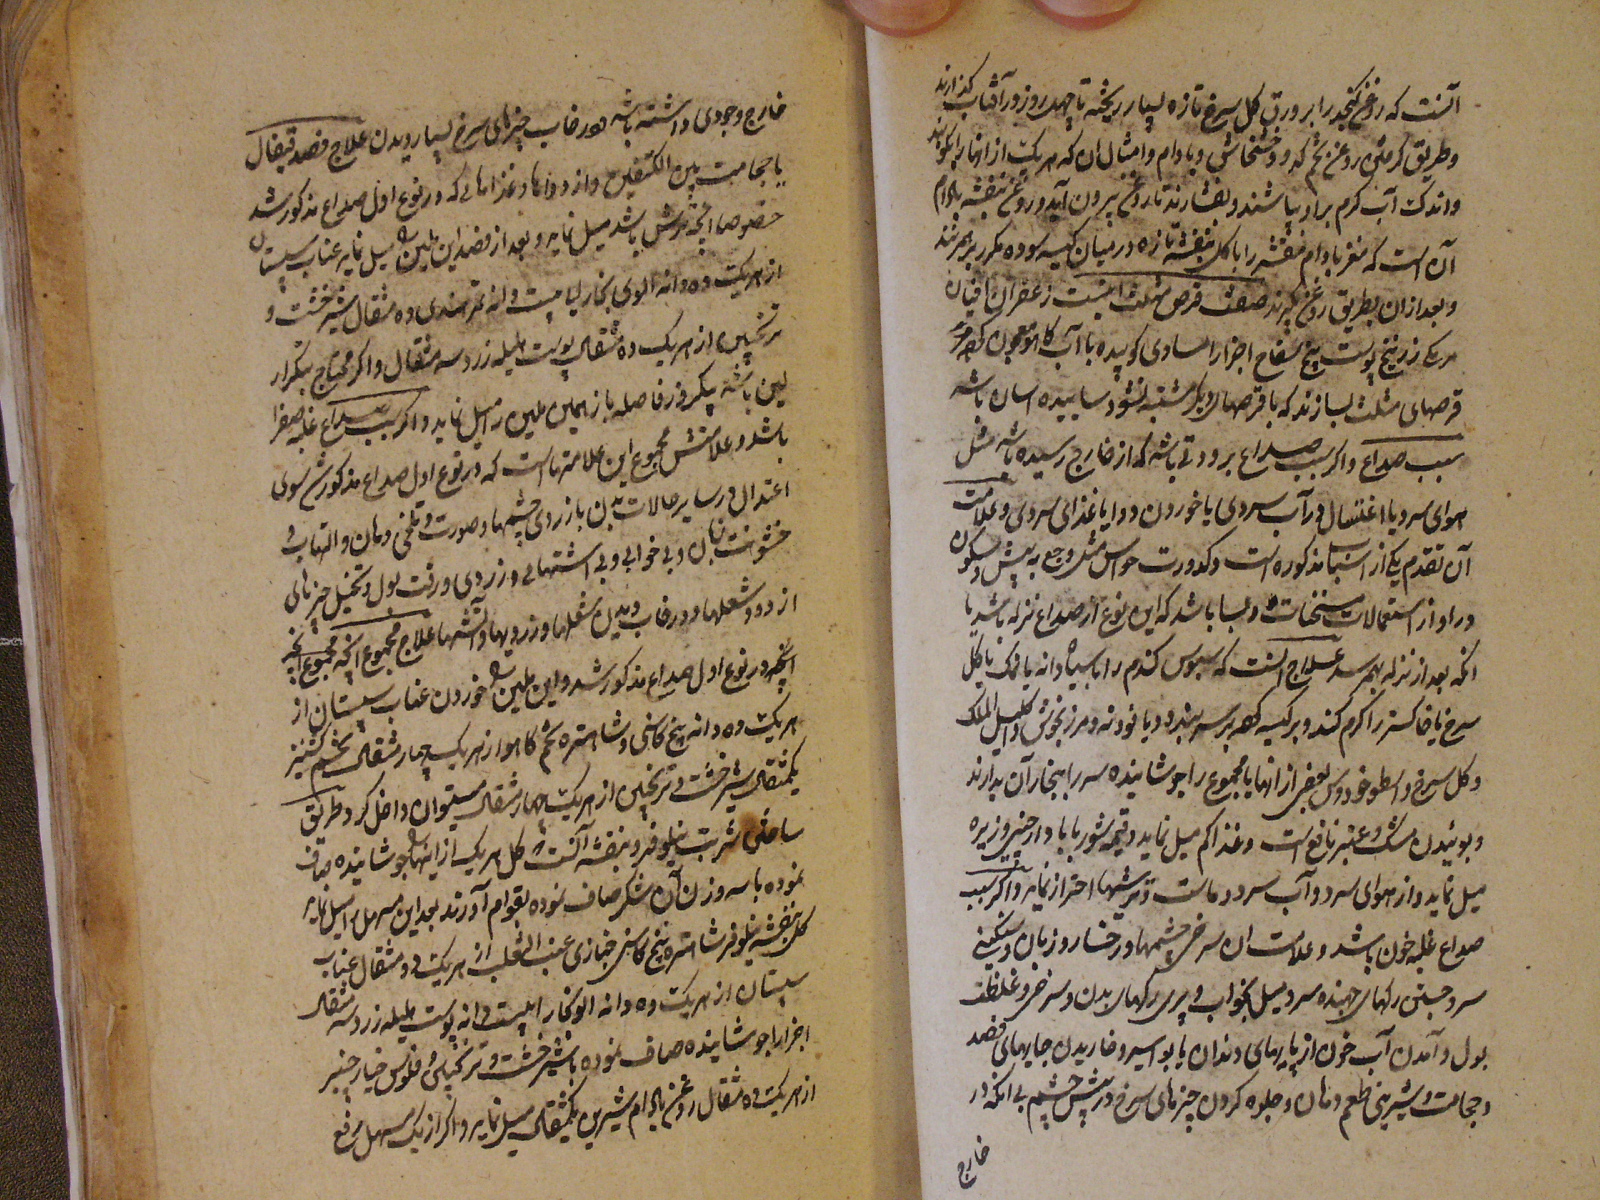 آنست که روغن کنجد را بر ورق کل سرخ تازه بسیار ریخته تا چهل روز در آفتاب کذارند
وطریق کرفتن روغن تخم کدو و خشخاش و بادام و امثال آن که هریک از آنها را بکوبند
واندک آب کرم براو بپاشند و بفشارند تا روغن بیرون آید و روغن بنفشه بادام
آن است که مغز بادام مقشر را با کل بنفشه تازه در میان کیسه سوده مکرر برهم زنند
وبعد از آن بطریق روغن کیرند صفت قرص مثلث اینست زعفران افیون
مرمکی زرنیخ پوست بیخ لفاح اجزا را مساوی کوبیده با آب کاهو معجون کرده
قرصهای مثلث بسازند که با قرصهای دیکر مشتبه نشود و ساییدن آسان باشد
سبب صداع و اکر سبب صداع برودتی باشد که از خارج رسیده باشد مثل
هوای سرد یا اغتسال در آب سردی یا خوردن دوا یا غذای سردی و علامت
آن تقدم یکی از اسباب مذکوره است و کدورت حواس مثل وجع به پیش و سکون
درد او از استعمالات مسخنات و بسا باشد که این نوع از صداع نزله باشد یا
آنکه بعد از نزله بهم رسد علاج آنست که سبوس کندم را با سیاه دانه یا نمک یا کل
سرخ یا خاکستر را کرم کنند و بر کیسه کرده بر سر ببندد و بابونه و مرزنجوش و اکلیل الملک
و کل سرخ و اسطوخودوس بعضی از آنها یا مجموع را جوشانیده سر را ببخار آن بدارند
و بوئیدن مشک و عنبر نافع است و غذا کم میل نماید و قیمه شوربا با دارچینی و زیره
میل نماید و از هوای سرد و آب سرد و ماست و ترشیها احتراز نماید و اکر سبب
صداع غلبه خون باشد و علامت آن سرخی چشمها و رخسار و زبان و سنکینی
سر و جستن رکهای جهنده سر و میل بخواب و پری رکهای بدن و سرخی و غلظت
بول و آمدن آب خون از پایهای دندان یا بواسیر و خاریدن جایهای فصد
و حجامت و شیرینی طعم دهان و جلوه کردن چیزهای سرخ در پیش چشم بی آنکه در
خارج
خارج وجودی داشته باشد و در خواب چیزهای سرخ بسیار دیدن علاج فصد قیفال
یا حجامت بین الکتفین و از دواها و غذاهائی که در نوع اول صداع مذکور شد
خصوصا آنچه ترش باشد میل نماید و بعد از فصد این ملین را میل نماید عناب سپستان
از هریک ده دانه آلوی بخارا بیست دانه تمر هندی ده مثقال شیرخشت و
ترنجبین از هریک ده مثقال پوست هلیله زرد سه مثقال و اکر محتاج بتکرار
لین باشد یکروز فاصله باز همین ملین را میل نماید و اکر سبب صداع غلبه صفرا
باشد و علامتش مجموع این علامتهاست که در نوع اول صداع مذکور شد سوی
اعتدال در سایر حالات بدن با زردی چشمها و صورت و تلخی دهان و التهاب و
خشونت زبان و بی خوابی و بی اشتهائی و زردی و رقت بول و تخیل چیزهائی
از دود و شعلها و در خواب دیدن شعلها و زردیها و آتشها علاج مجموع آنچه مجموع آنچه
آنچه در نوع اول صداع مذکور شد و این ملین را خوردن عناب سپستان از
هریک ده دانه بیخ کاسنی و شاهتره تخم کاهو از هریک چهار مثقال تخم کشنیز
یکمثقال شیرخشت و ترنجبین از هریک چهار مثقال میتوان داخل کرد و طریق
ساختن شربت نیلوفر و بنفشه آنست که کل هریک از اینها را جوشانیده صاف
نموده با سه وزن آن شکر صاف نموده بقوام آورند بعد این مسهل را میل نماید
کل بنفشه نیلوفر شاهتره بیخ کاسنی خبازی عنب الثعلب از هریک دو مثقال عناب
سپستان از هریک ده دانه آلو بخارا بیست دانه پوست هلیله زرد سه مثقال
اجزا را جوشانیده صاف نموده با شیرخشت و ترنجبین و فلوس خیار چنبر
از هریک ده مثقال روغن بادام شیرین یکمثقال میل نماید و اکر از یک مسهل رفع